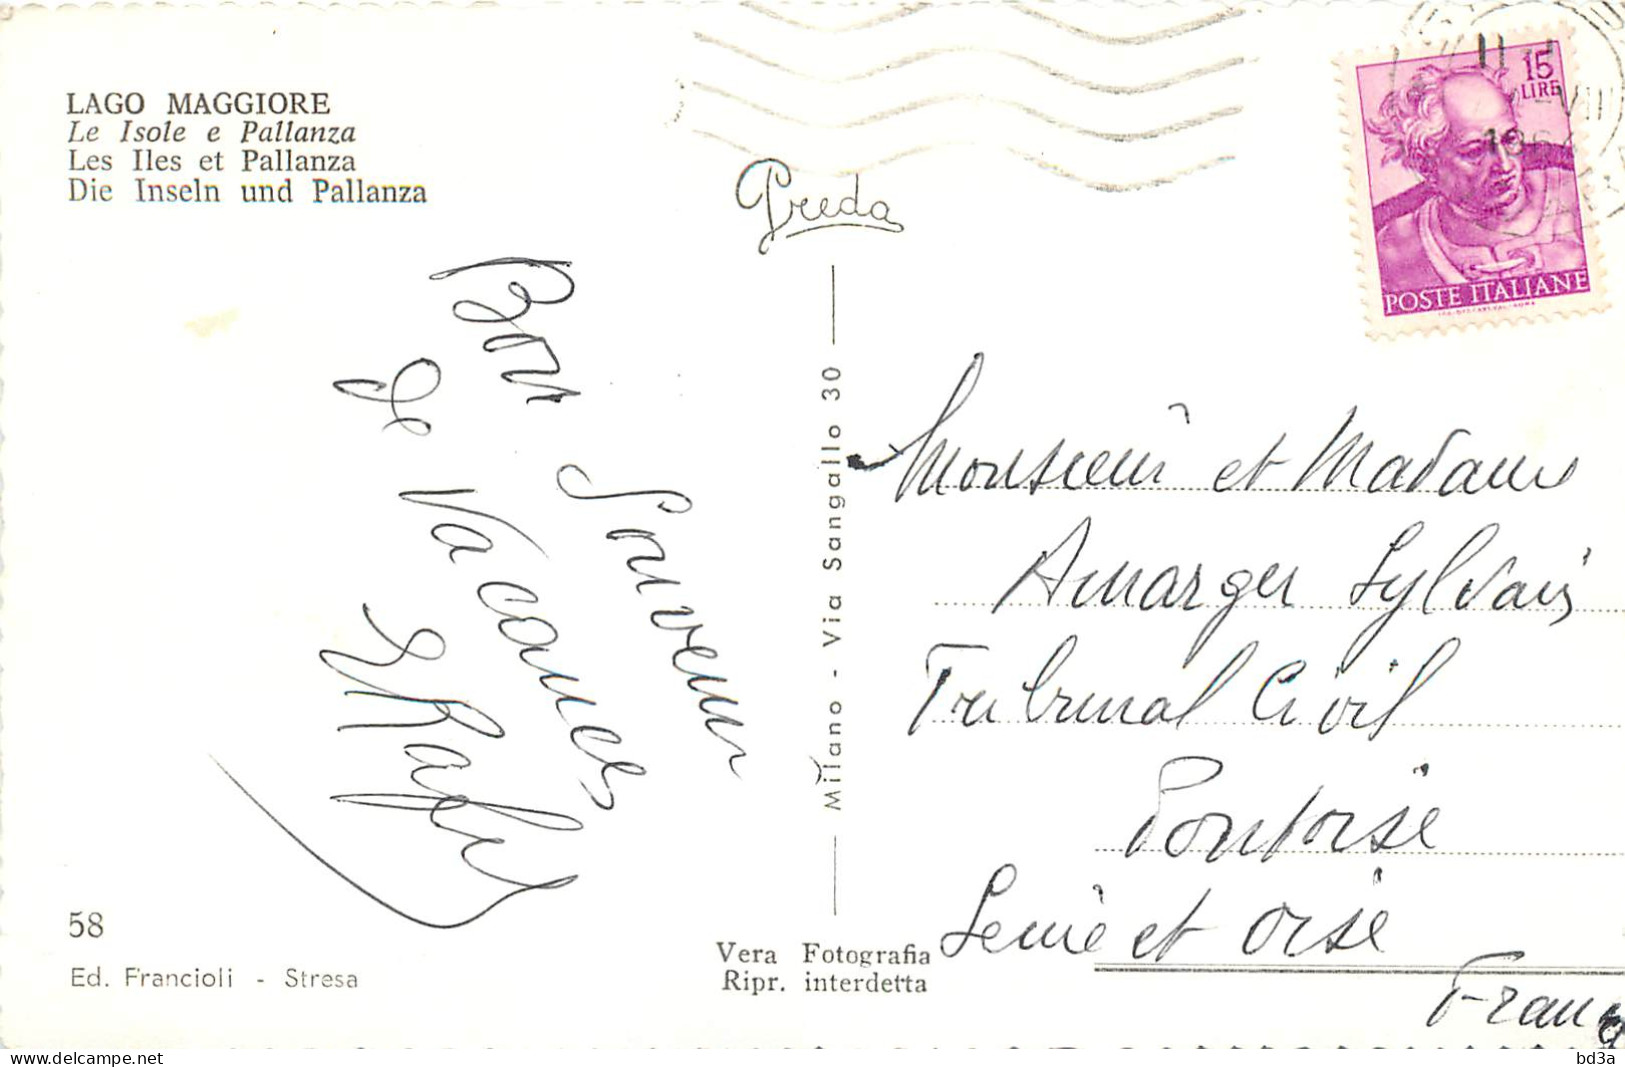 LAGO MAGGIORE
Le Isole e Pallanza
Les Iles et Pallanza
Die Inseln und Pallanza
Preda
15
LIRE
POSTE ITALIANE
Bon Souvenir
de Vacances
Milano - Via Sangallo 30
Monsieur et Madame
Amarger Sylvain
Tribunal Civil
Pontoise
Seine et Oise
France
58
Ed. Francioli - Stresa
Vera Fotografia
Ripr. interdetta
delcampe.net
bd3a